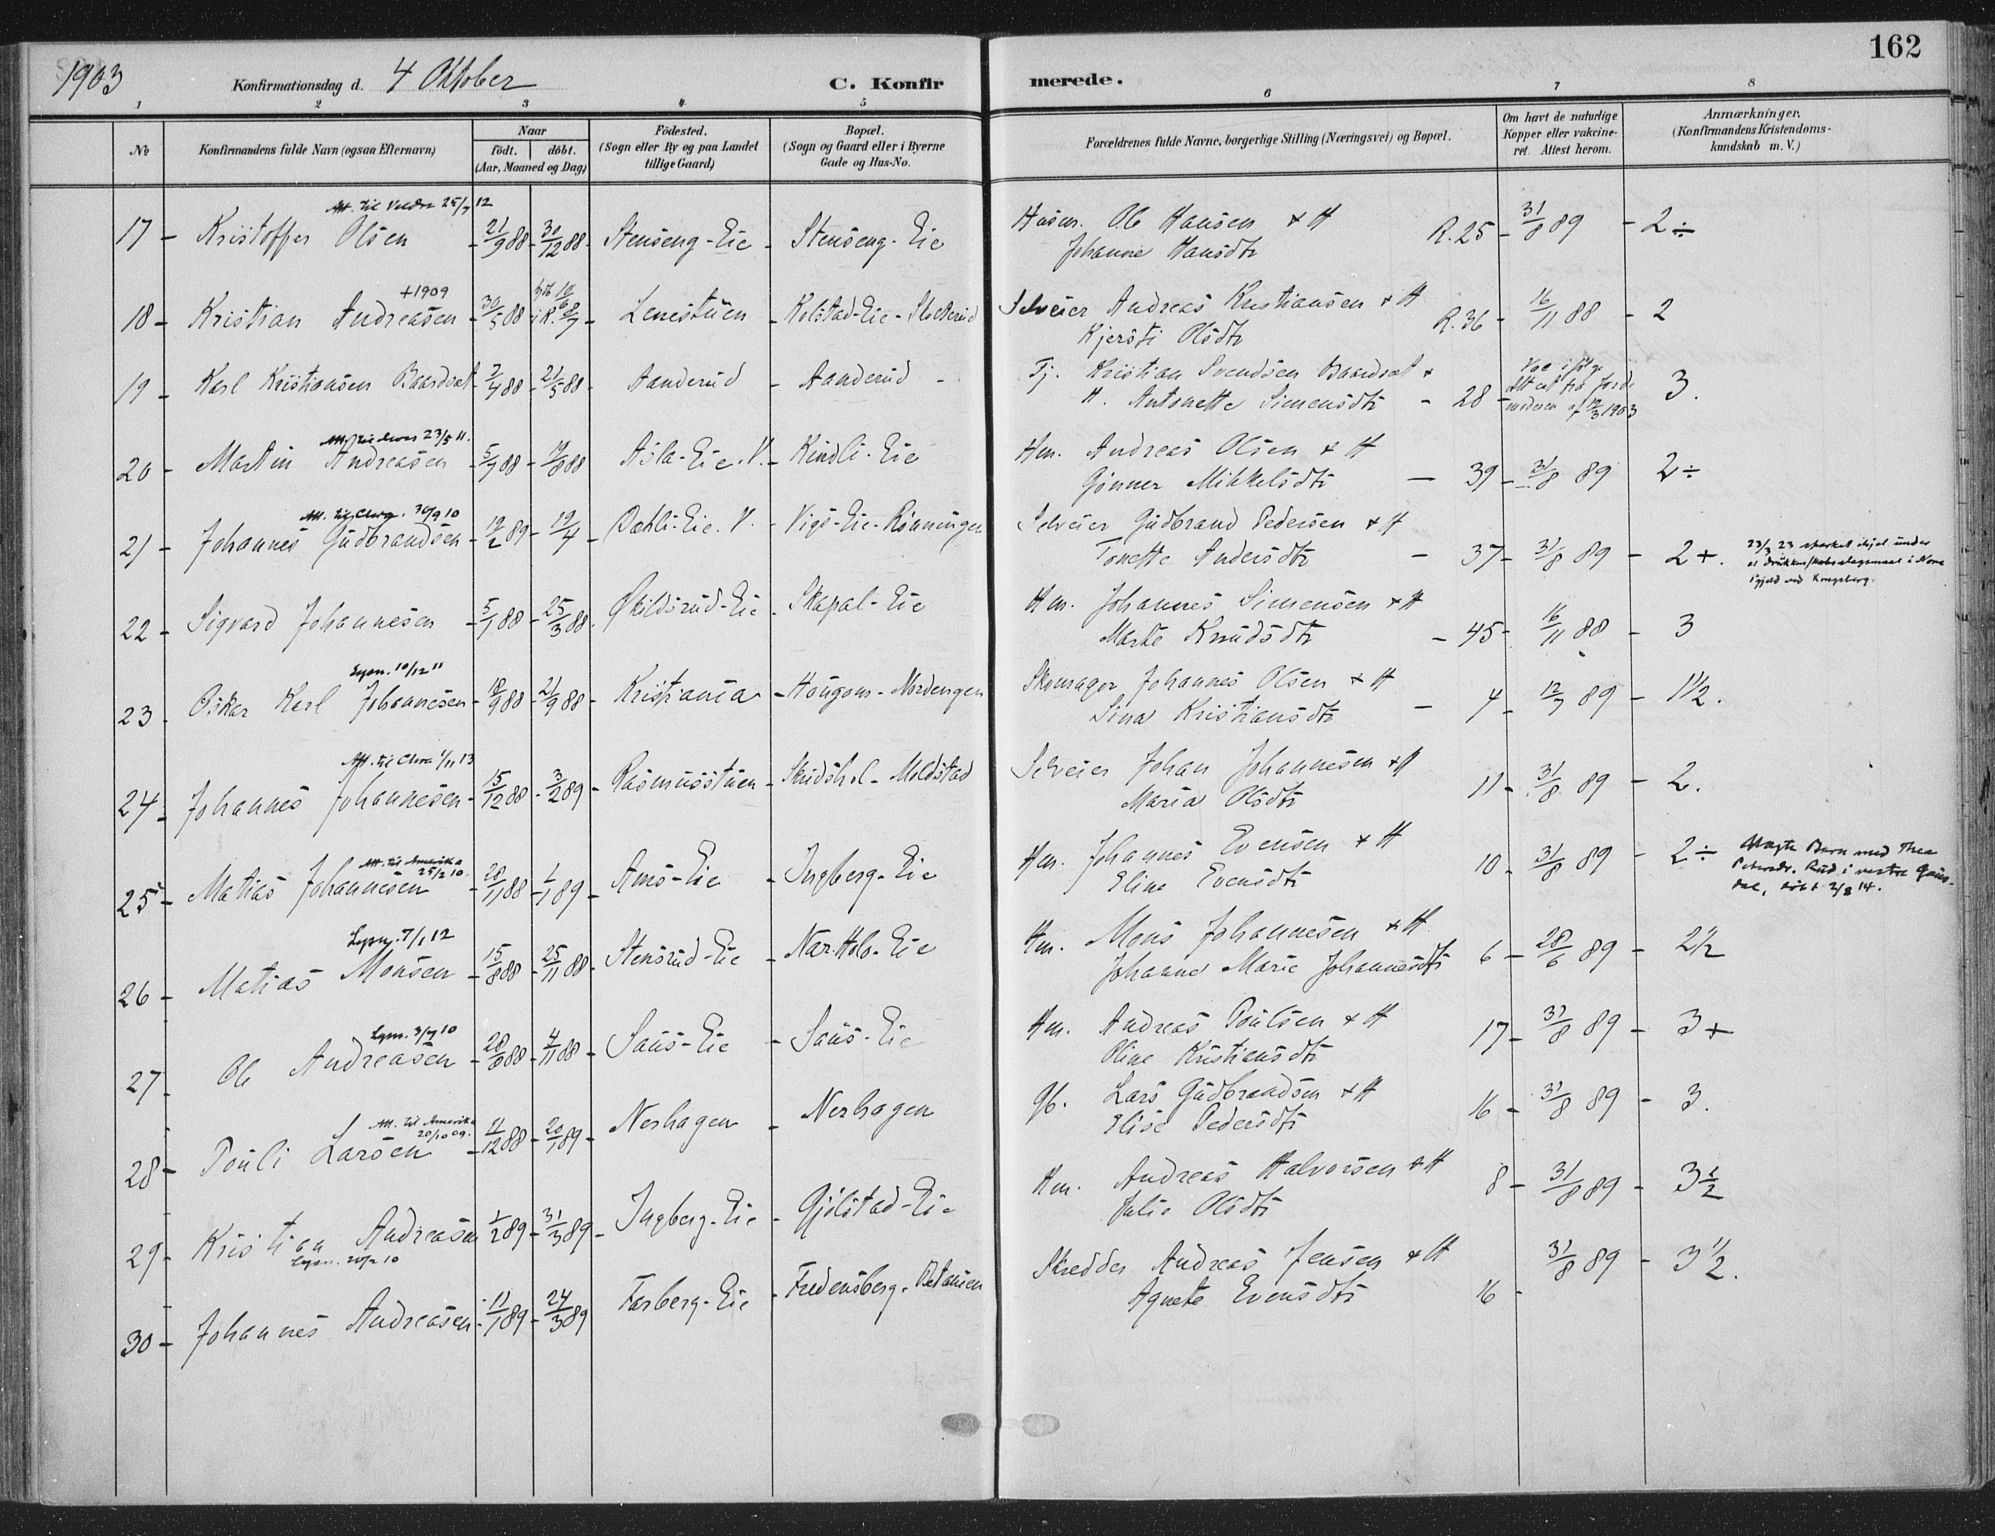 1903 Konfirmationsdag d. 4 Oktober C. Konfirmerede. 162
1 2 3 4 5 6 7 8
No Konfirmandens fulde Navn (ogsaa Efternavn) Naar født. døbt. (Aar, Maaned og Dag) Fødested. (Sogn eller By og paa Landet tillige Gaard) Bopæl. (Sogn og Gaard eller i Byerne Gade og Hus-No. Forældrenes fulde Navne, borgerlige Stilling (Næringsvei) og Bopæl. Om havt de naturlige Kopper eller vakcineret. Attest herom. Anmærkninger. (Konfirmandens Kristendomskundskab m. V.)
Att. til Veldre 25/7 12
17 - Kristoffer Olsen - 21/9 88 - 30/12 88 - Stenseng-Eie - Stenseng-Eie Husm. Ole Hansen & H R. 25 - 31/8 89 - 2 ÷
Johanne Hansdtr
+ 1909
18 - Kristian Andreasen - 30/5 88 - Lenestuen - Kolstad-Eie - Selveier Andreas Kristiansen & H R. 36 - 16/11 88 - 2
Kjersti Olsdtr
19 - Karl Kristiansen Baardset - 7/4 88 - 21/5 88 - Aanderud - Aanderud - Tj. Kristian Svendsen Baardset &
H. Antonette Simensdtr - 28 - Vac. ifølge Attest fra Jordemoderen af 12/3 1903 3.
23/5 11.
20 - Martin Andreasen - 5/7 88 - 19/8 88 - Asla-Eie. V. - Kindli-Eie Hm. Andreas Olsen & H
Gønner Mikkelsdtr - 39 - 31/8 89 - 2 ÷
Att. til Chra. 30/9 10
21 - Johannes Gudbrandsen - 19/2 89 - 19/4 - Dæhli-Eie. V. - Vigs-Eie-Rønningen Selveier Gudbrand Pedersen & H
Tonette Andersdtr - 37 - 31/8 89 - 2 +. 23/3 23 ihjel under
et i Nore
ved Kongsberg.
22 - Sigvard Johannesen - 5/1 88 - 25/3 88. Økildsrud-Eie - Skapal-Eie Hm. Johannes Simensen & H
Marte Knudsdtr - 45 - 16/11 88 - 3
Lysn. 10/12 11
23 - Oskar Karl Johannesen - 18/9 88 - 21/9 88 - Kristiania - Hougom-Nordengen Skomager Johannes Olsen & H
Sina Kristiansdtr - 4 - 12/7 89 - 1 1/2.
Att. til Chra 1/11 13
24 - Johannes Johannesen - 15/12 88 - 3/2 89 - Rasmusstuen - Skudshol-Moldstad Selveier Johan Johannesen & H
Maria Olsdtr 11 - 31/8 89 - 2.
Att. til Amerika
25/2 10.
25 - Matias Johannesen - 28/11 88 - 1/1 89 - Ams-Eie - Ingberg-Eie Hm. Johannes Evensen & H
Eline Evensdtr 10 - 31/8 89 - 2 ÷ Ægte Barn med Thea
Pedersdr. Rud i vestre Gaus-
dal, døbt 2/8 14.
Lysn. 7/1 12
26 - Matias Monsen - 15/8 88 - 25/11 88 - Stensrud-Eie - Nær-Hols-Eie Hm. Mons Johannesen & H
Johanne Marie Johannesdtr 6 - 28/6 89 - 2 1/2
Lysn. 3/7 10
27 - Ole Andreasen - 28/8 88 - 4/11 88 - Saus-Eie - Saus-Eie Hm. Andreas Poulsen & H
Oline Kristiansdtr 17 - 31/8 89 - 3 +
Att. til Amerika
20/10 09.
28 - Pouli Larsen - 11/12 88 - 20/1 89 - Neshagen - Neshagen Gb. Lars Gudbrandsen & H
Elise Pedersdtr 16 - 31/8 89 - 3.
29 - Kristian Andreasen 1/2 89 - 31/3 89 - Ingberg-Eie - Gjølstad-Eie Hm. Andreas Halvorsen & H
Julie Olsdtr 8 - 31/8 89 - 3 1/2
Lysn. 20/2 10
30 - Johannes Andreasen - 11/1 89 - 24/3 89 Farberg-Eie - Fredensberg-Betanien Skredder Andreas Jensen & H
Agnete Evensdtr 16 - 31/8 89 - 3 1/2.